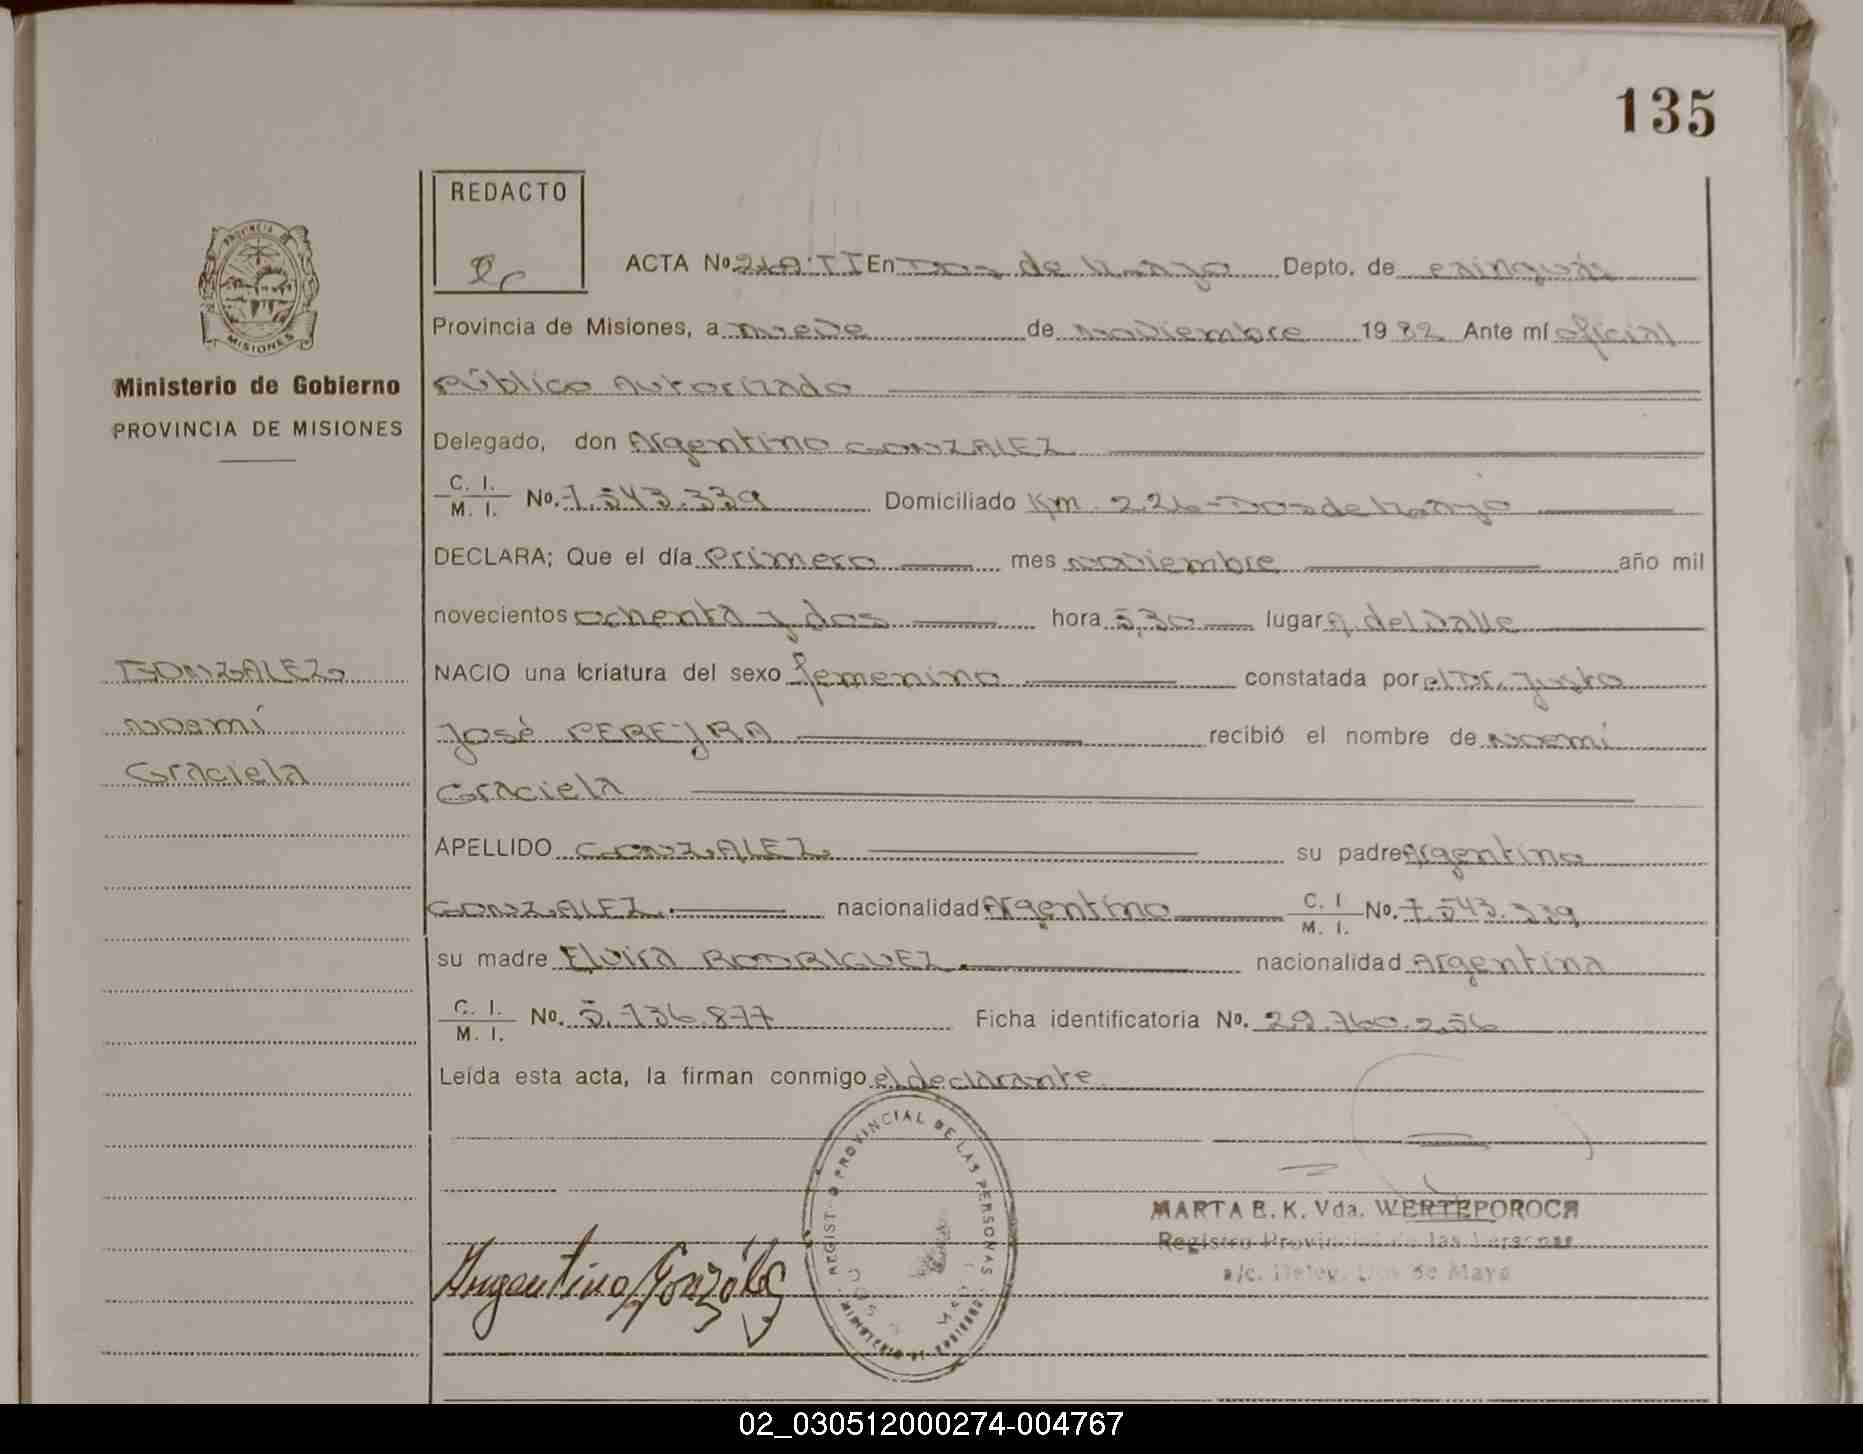 135
REDACTO
ACTA No 
En Dos de Mayo Depto. de Cainguás
PROVINCIA DE
MISIONES
Ministerio de Gobierno
PROVINCIA DE MISIONES
Provincia de Misiones, a nueve de noviembre 1982 Ante mí oficial
Público Autorizado
Delegado, don Argentino GONZALEZ
C. I.
M. I. No. 7.543.339 Domiciliado Km. 226-Dos de Mayo
DECLARA; Que el día Primero mes noviembre año mil
novecientos ochenta y dos hora 5,30 lugar A. del Valle
NACIO una criatura del sexo femenino constatada por el Dr. Justo
José PEREYRA recibió el nombre de Noemí
Graciela
GONZALEZ
Noemí
Graciela
APELLIDO GONZALEZ su padre Argentino
GONZALEZ nacionalidad Argentino C. I
M. I. No. 7.543.339
su madre Elvira RODRIGUEZ nacionalidad Argentina
C. I.
M. I. No. 5.136.877 Ficha identificatoria No. 29.760.256
Leída esta acta, la firman conmigo el declarante.
PROVINCIAL DE LAS PERSONAS
MARTA E. K. Vda. WERTEPOROCH
Registro Provincial de las Personas
a/c. Deleg. Dos de Mayo
Argentino González
02_030512000274-004767